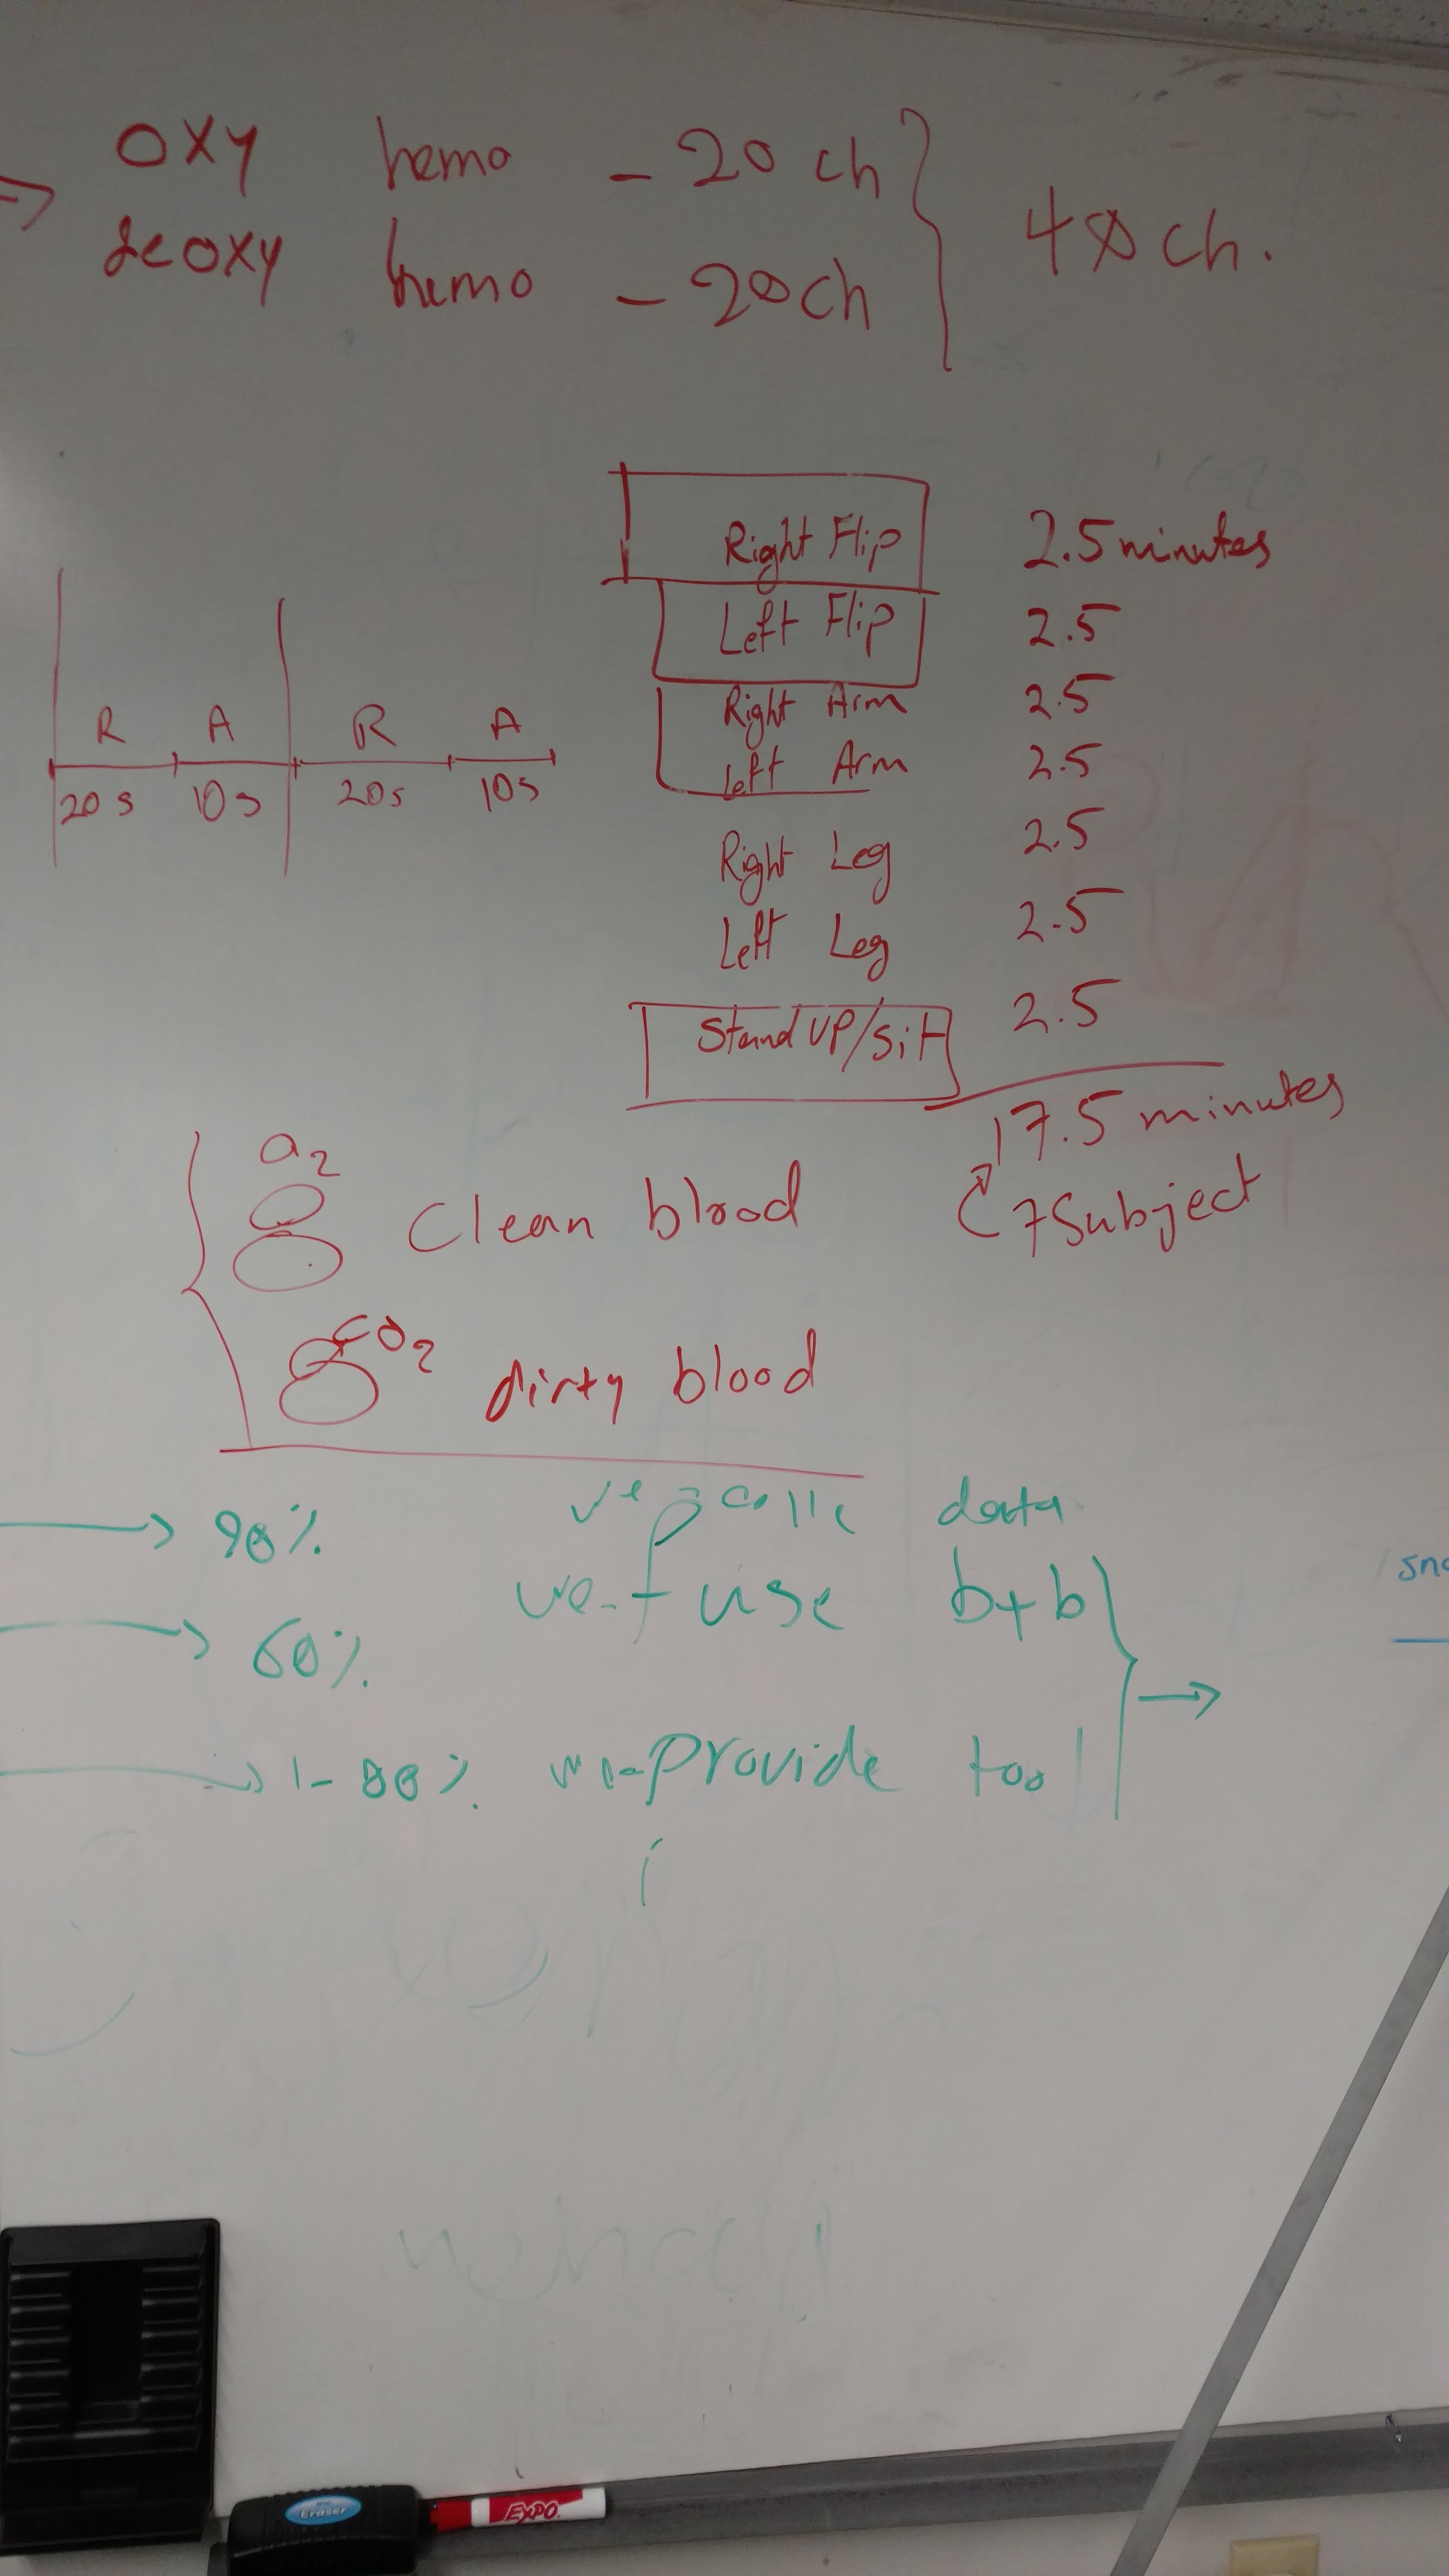 oxy hemo - 20 ch
deoxy hemo - 20 ch
40 ch.
R A R A
20s 10s 20s 10s
Right Flip 2.5 minutes
Left Flip 2.5
Right Arm 2.5
Left Arm 2.5
Right Leg 2.5
Left Leg 2.5
Stand UP/Sit 2.5
17.5 minutes
7 Subject
O2
Clean blood
CO2
dirty blood
90% data
we use b+b
60%
1-80% Provide tool
Eraser
EXPO